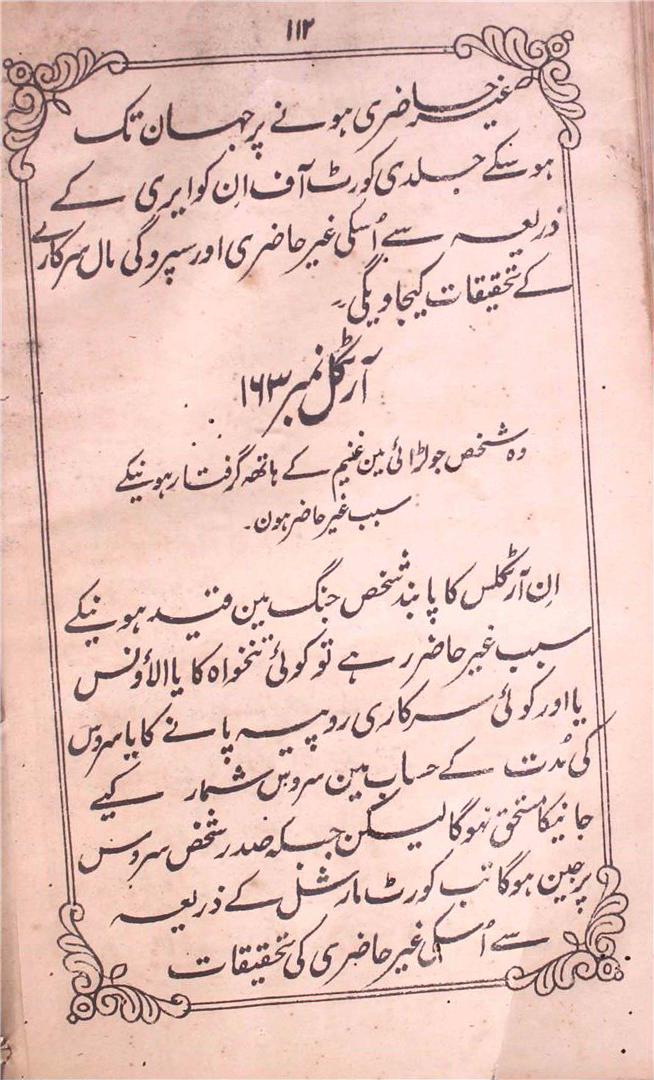 ۱۱۲
غیر حاضری ہونے پر جہان تک
ہو سکے جلدی کورٹ آف اِن کوایری کے
ذریعہ سے اُسکی غیر حاضری اور سپردگی مال سرکاری
کے تحقیقات کیجاویگی۔
آرٹکل نمبر ۱۶۳
وہ شخص جو لڑائی مین غنیم کے ہاتھ گرفتار ہونیکے
سبب غیر حاضر ہون۔
اِن آرٹکلس کا پابند شخص جنگ مین قید ہونیکے
سبب غیر حاضر رہے تو کوئی تنخواہ کا یا الأونس
یا اور کوئی سرکاری روپیہ پانے کا یا سروس
کی مُدت کے حساب مین سروس شمار کیے
جانیکا مستحق نہوگا لیکن جبکہ صدر شخص سروس
پر جین ہوگا تب کورٹ مارشل کے ذریعہ
سے اُسکی غیر حاضری کی تحقیقات